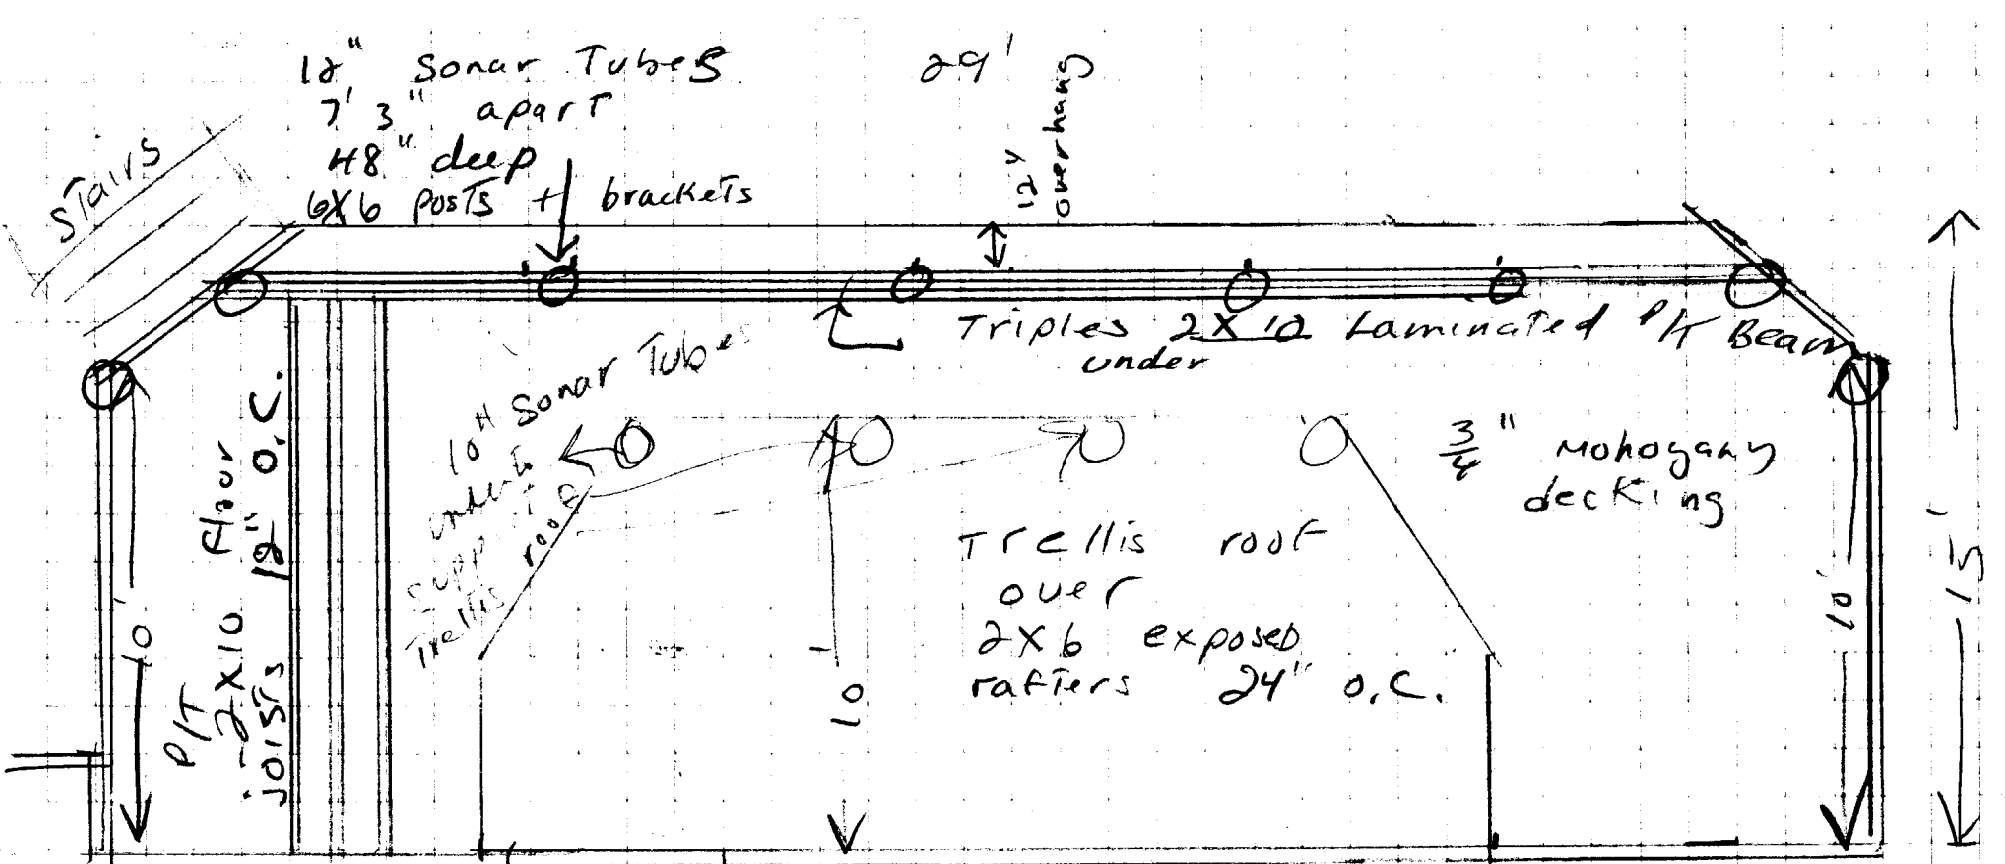 12" Sonar Tubes
7' 3" apart
48" deep
6x6 posts + brackets
29'
12"
overhang
Stairs
Triples 2x10 Laminated P/T Beam
under
10" Sonar Tubes
under
Supp
Trellis roof
3/4" Mohogany
decking
Trellis roof
over
2x6 exposed
rafters 24" o.c.
P/T
2x10 Floor
joists 12" O.C.
10'
10'
10'
15'